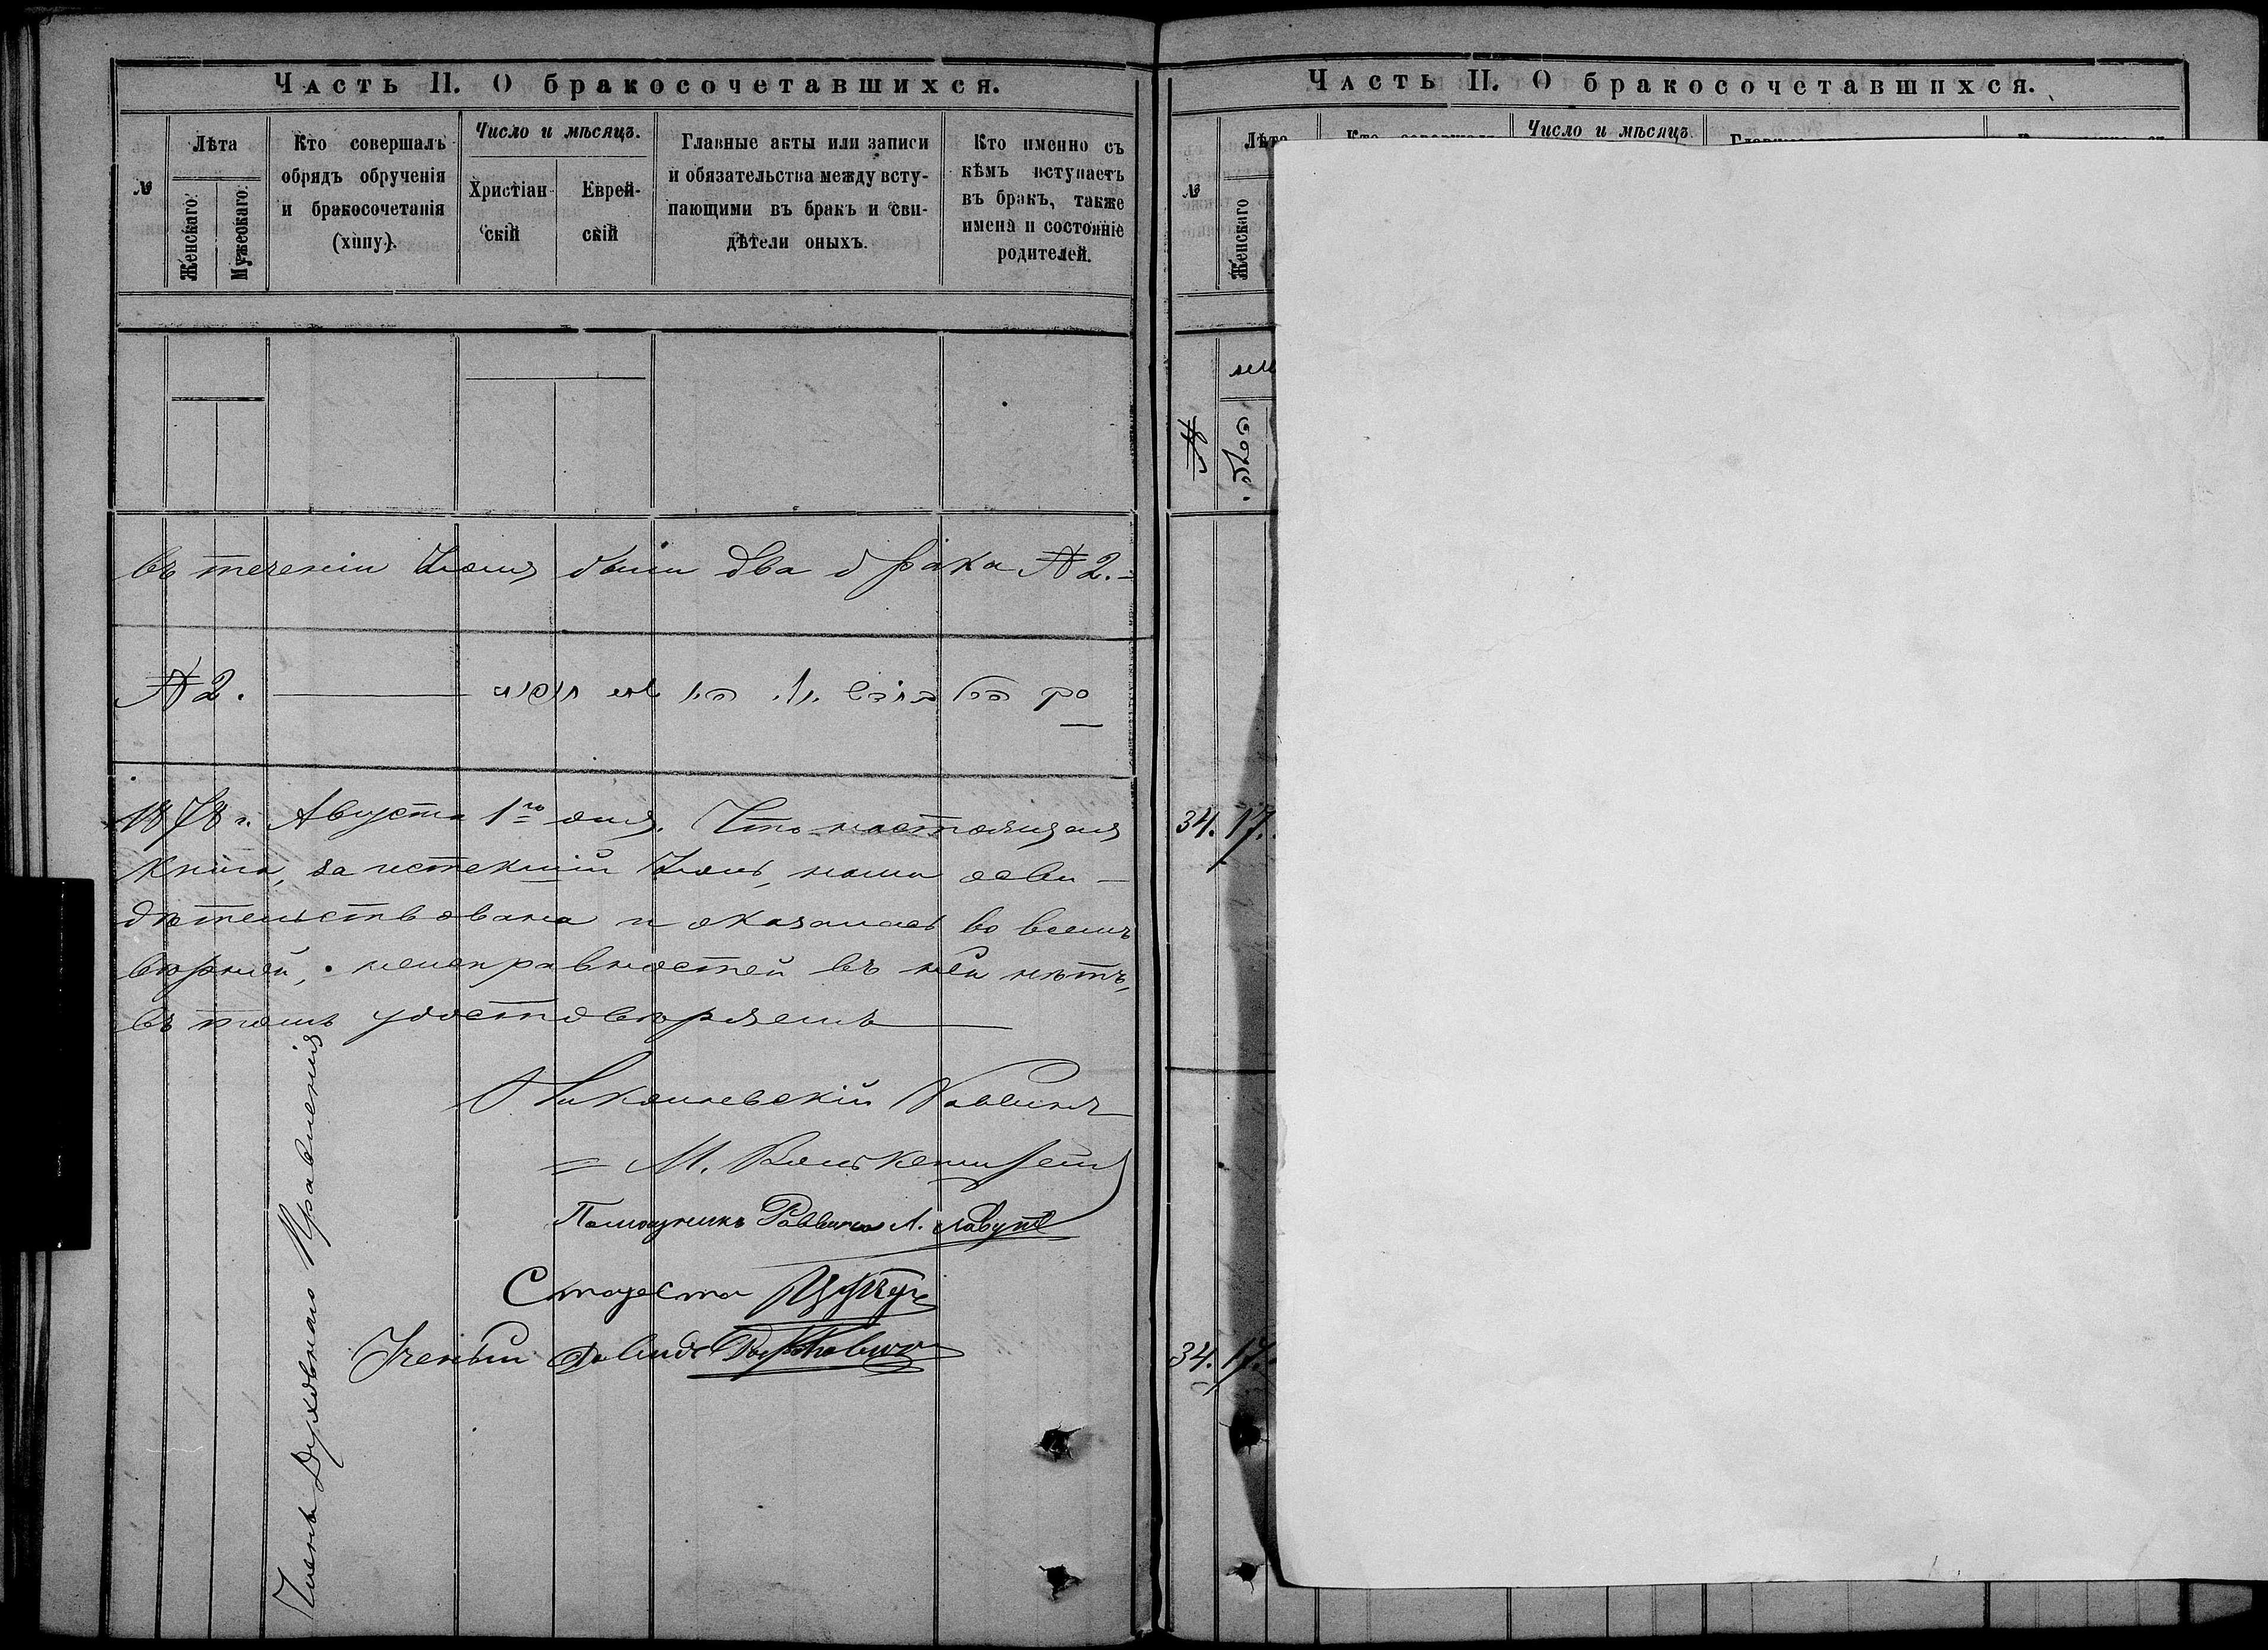 Часть II. О бракосочетавшихся.
№
Лѣта
Женскаго.
Мужескаго.
Кто совершалъ
обрядъ обрученія
и бракосочетанія
(хипу).
Число и мѣсяцъ.
Христіан-
скій
Еврей-
скій
Главные акты или записи
и обязательства между всту-
пающими въ бракъ и сви-
дѣтели оныхъ.
Кто именно съ
кѣмъ вступаетъ
въ бракъ, также
имена и состояніе
родителей.
Въ теченіи Іюля были два брака № 2.-
№ 2.
סך הכל
1878 г. Августа 1го дня. Что настоящая
книга, за истекшій Іюль, нами осви-
дѣтельствована и оказалась во всемъ
вѣрной, неисправностей въ ней нѣтъ,
въ томъ удостовѣряемъ
Николаевскій Раввинъ
М.
Помощникъ Раввина Л.
Староста
Ученый Давидъ
Члены Духовнаго Правленія
Часть II. О бракосочетавшихся.
№
Лѣта
Женскаго
Число и мѣсяцъ
№
34. 17.
34. 17.